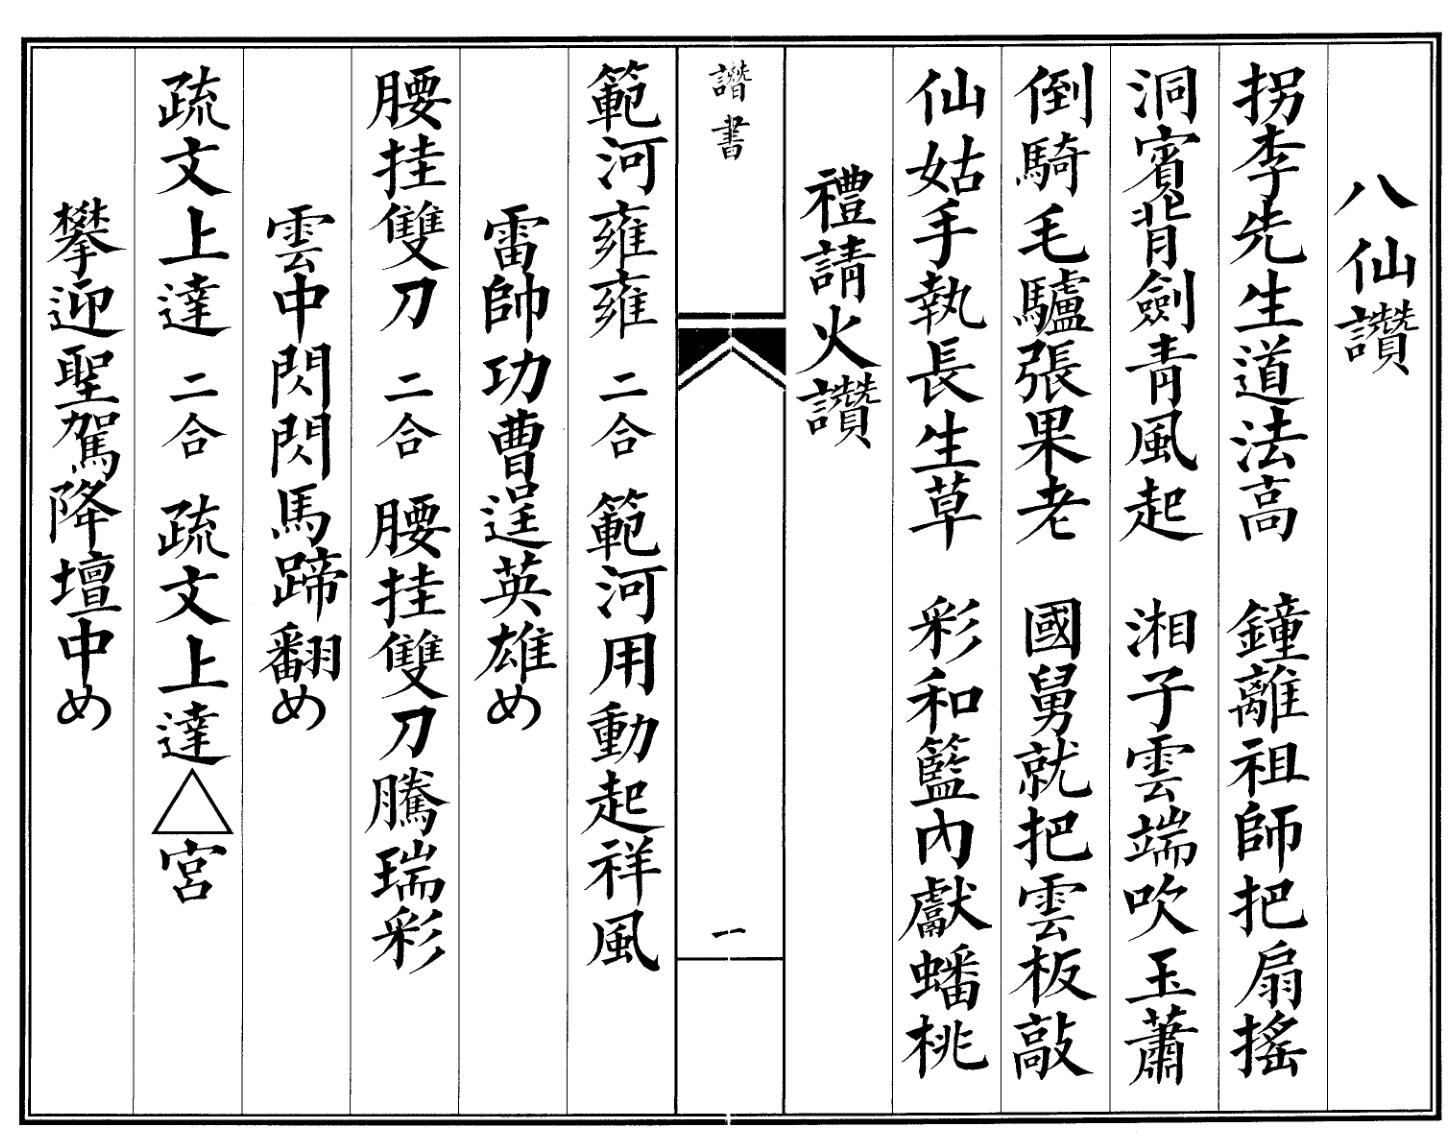 八仙讚
拐李先生道法高 鐘離祖師把扇搖
洞賓背劍青風起 湘子雲端吹玉蕭
倒騎毛驢張果老 國舅就把雲板敲
仙姑手執長生草 彩和籃內獻蟠桃
禮請火讚
讚書
一
範河雍雍 二合 範河用動起祥風
雷帥功曹逞英雄め
腰挂雙刀 二合 腰挂雙刀騰瑞彩
雲中閃閃馬蹄翻め
疏文上達 二合 疏文上達△宮
攀迎聖駕降壇中め